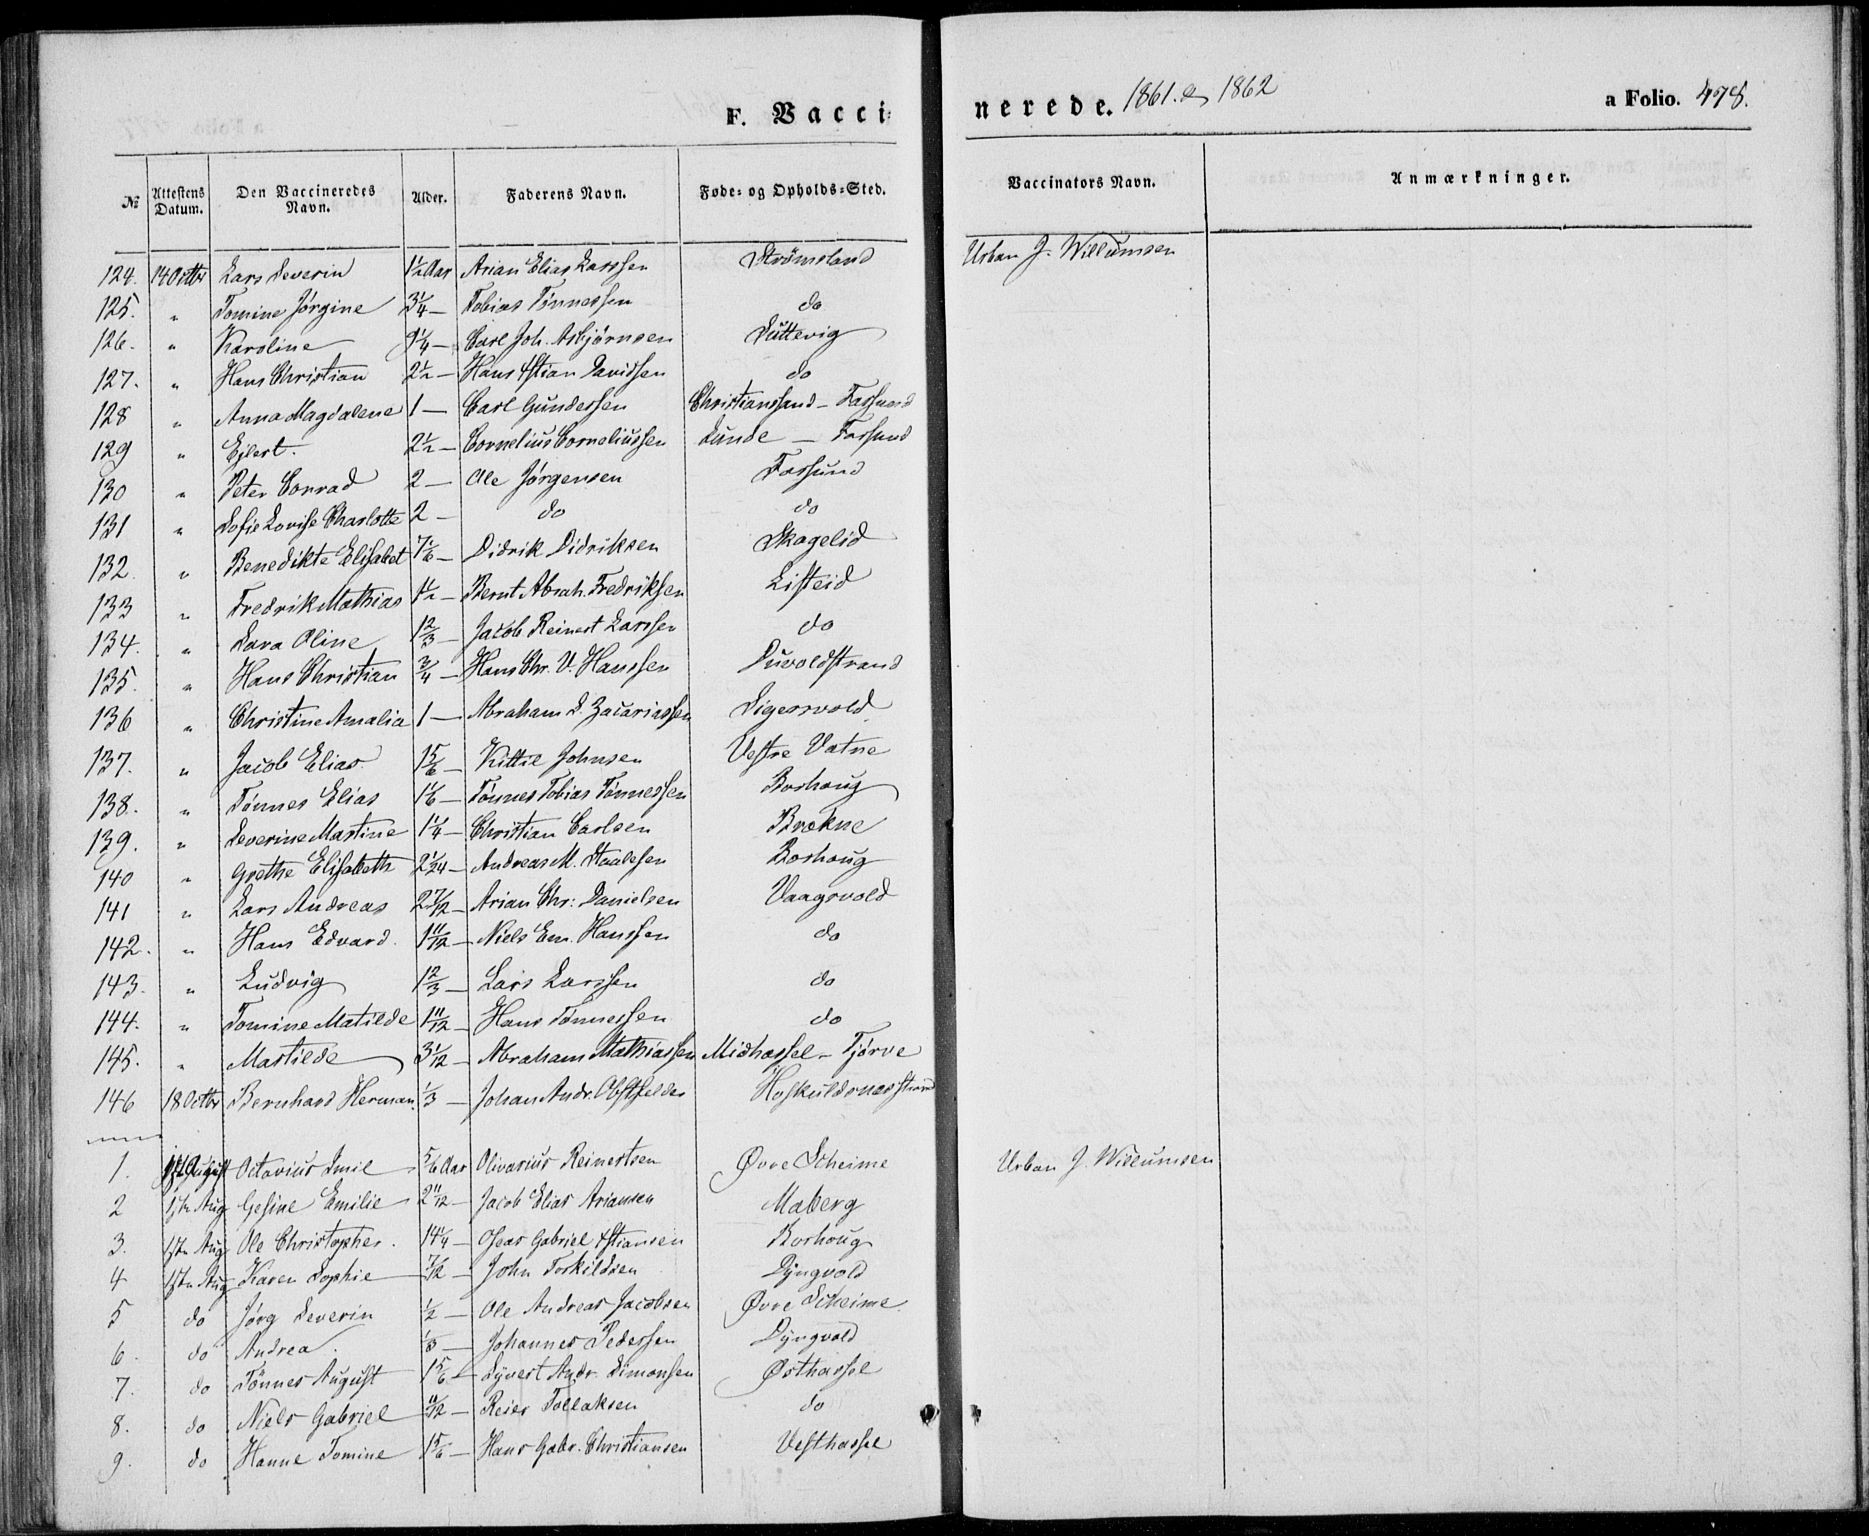 F. Vacci-
nerede. 1861. & 1862
a Folio. 478.
№ Attestens Datum. Den Vaccineredes Navn. Alder. Faderens Navn. Føde- og Opholds-Sted. Vaccinators Navn. Anmærkninger.
124. 14 Octbr Lars Severin 1½ Aar Arian Elias Larssen Strömsland Urban J. Willumsen
125. " Tomine Jørgine 3¼ — Tobias Tönnessen do
126. " Karoline 9¼ — Carl Joh. Asbjørnsen Luttevig
127. " Hans Christian 2½ — Hans Xstian Davidsen do
128 " Anna Magdalene 1 — Carl Gundersen Christianssand — Farsund
129 " Ejlert. 2½ — Cornelius Corneliussen Lunde — Farsund
130 " Peter Conrad 2 — Ole Jørgensen Farsund
131 " Sofie Lovise Charlotte 2 — do do
132. " Benedikte Elisabet 7⅙ — Didrik Didriksen Skagelid
133 " Fredrik Mathias 1½ — Bernt Abrah. Fredriksen Listeid
134. " Sara Oline 1⅔ — Jacob Reinert Larssen do
135. " Hans Christian ¾ — Hans Chr. V. Hanssen Duvoldstrand
136 " Christine Amalia 1 — Abraham S. Zacariassen Sigersvold
137. " Jacob Elias 1⅚ — Kittil Johnsen Vestre Vatne
138. " Tönnes Elias 1⅙ — Tönnes Tobias Tönnessen Borhoug
139. " Severine Martine 1¼ — Christian Carlsen Brekne
140 " Grethe Elisabeth 2 1/24 — Andreas M. Staalesen Borhoug
141 " Lars Andreas 2 7/12 — Arian Chr: Danielsen Vaagsvold
142. " Hans Edvard. 1 11/12 — Niels Em. Hanssen do
143. " Ludvig 1⅔ — Lars Larssen do
144. " Tomine Matilde 1 11/12 — Hans Tönnessen do
145. " Martilde 3 1/12 — Abraham Mathiassen Midhassel — Tjørve
146 18 Octbr Bernhard Herman. ⅓ — Johan Andr. Obstfelder Hoskuldsnæsstrand
1. August Octavius Emil ⅚ Aar Olivarius Reinertsen Øvre Skeime Urban J. Willumsen
2 Aug Gesine Emilie 2 11/12 — Jacob Elias Ariansen Maberg
3. Aug Ole Christopher. 14¼ — Oseas Gabriel Xstiansen Borhoug
4 Aug Karen Sophie 7/12 — John Torkildsen Dyngvold
5 do Jørg Severin ½ — Ole Andreas Jacobsen Øvre Skeime
6. do Andrea. ⅓ — Johannes Pedersen Dyngvold
7. do Tönnes August 1⅚ — Syvert Andr. Simonsen Østhassel
8. do Niels Gabriel 11/12 — Reier Tollaksen do
9. do Hanne Tomine 1⅚ — Hans Gabr. Christiansen Vesthassel